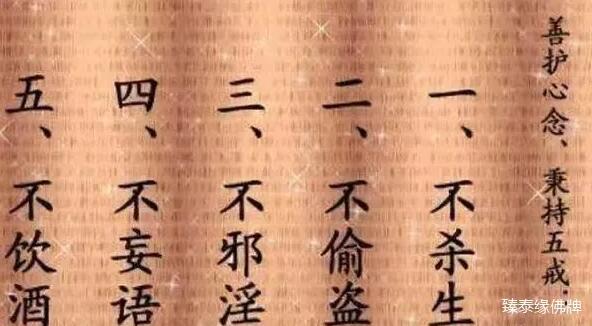 善护心念、秉持五戒：
一、不杀生
二、不偷盗
三、不邪淫
四、不妄语
五、不饮酒
臻泰缘佛牌